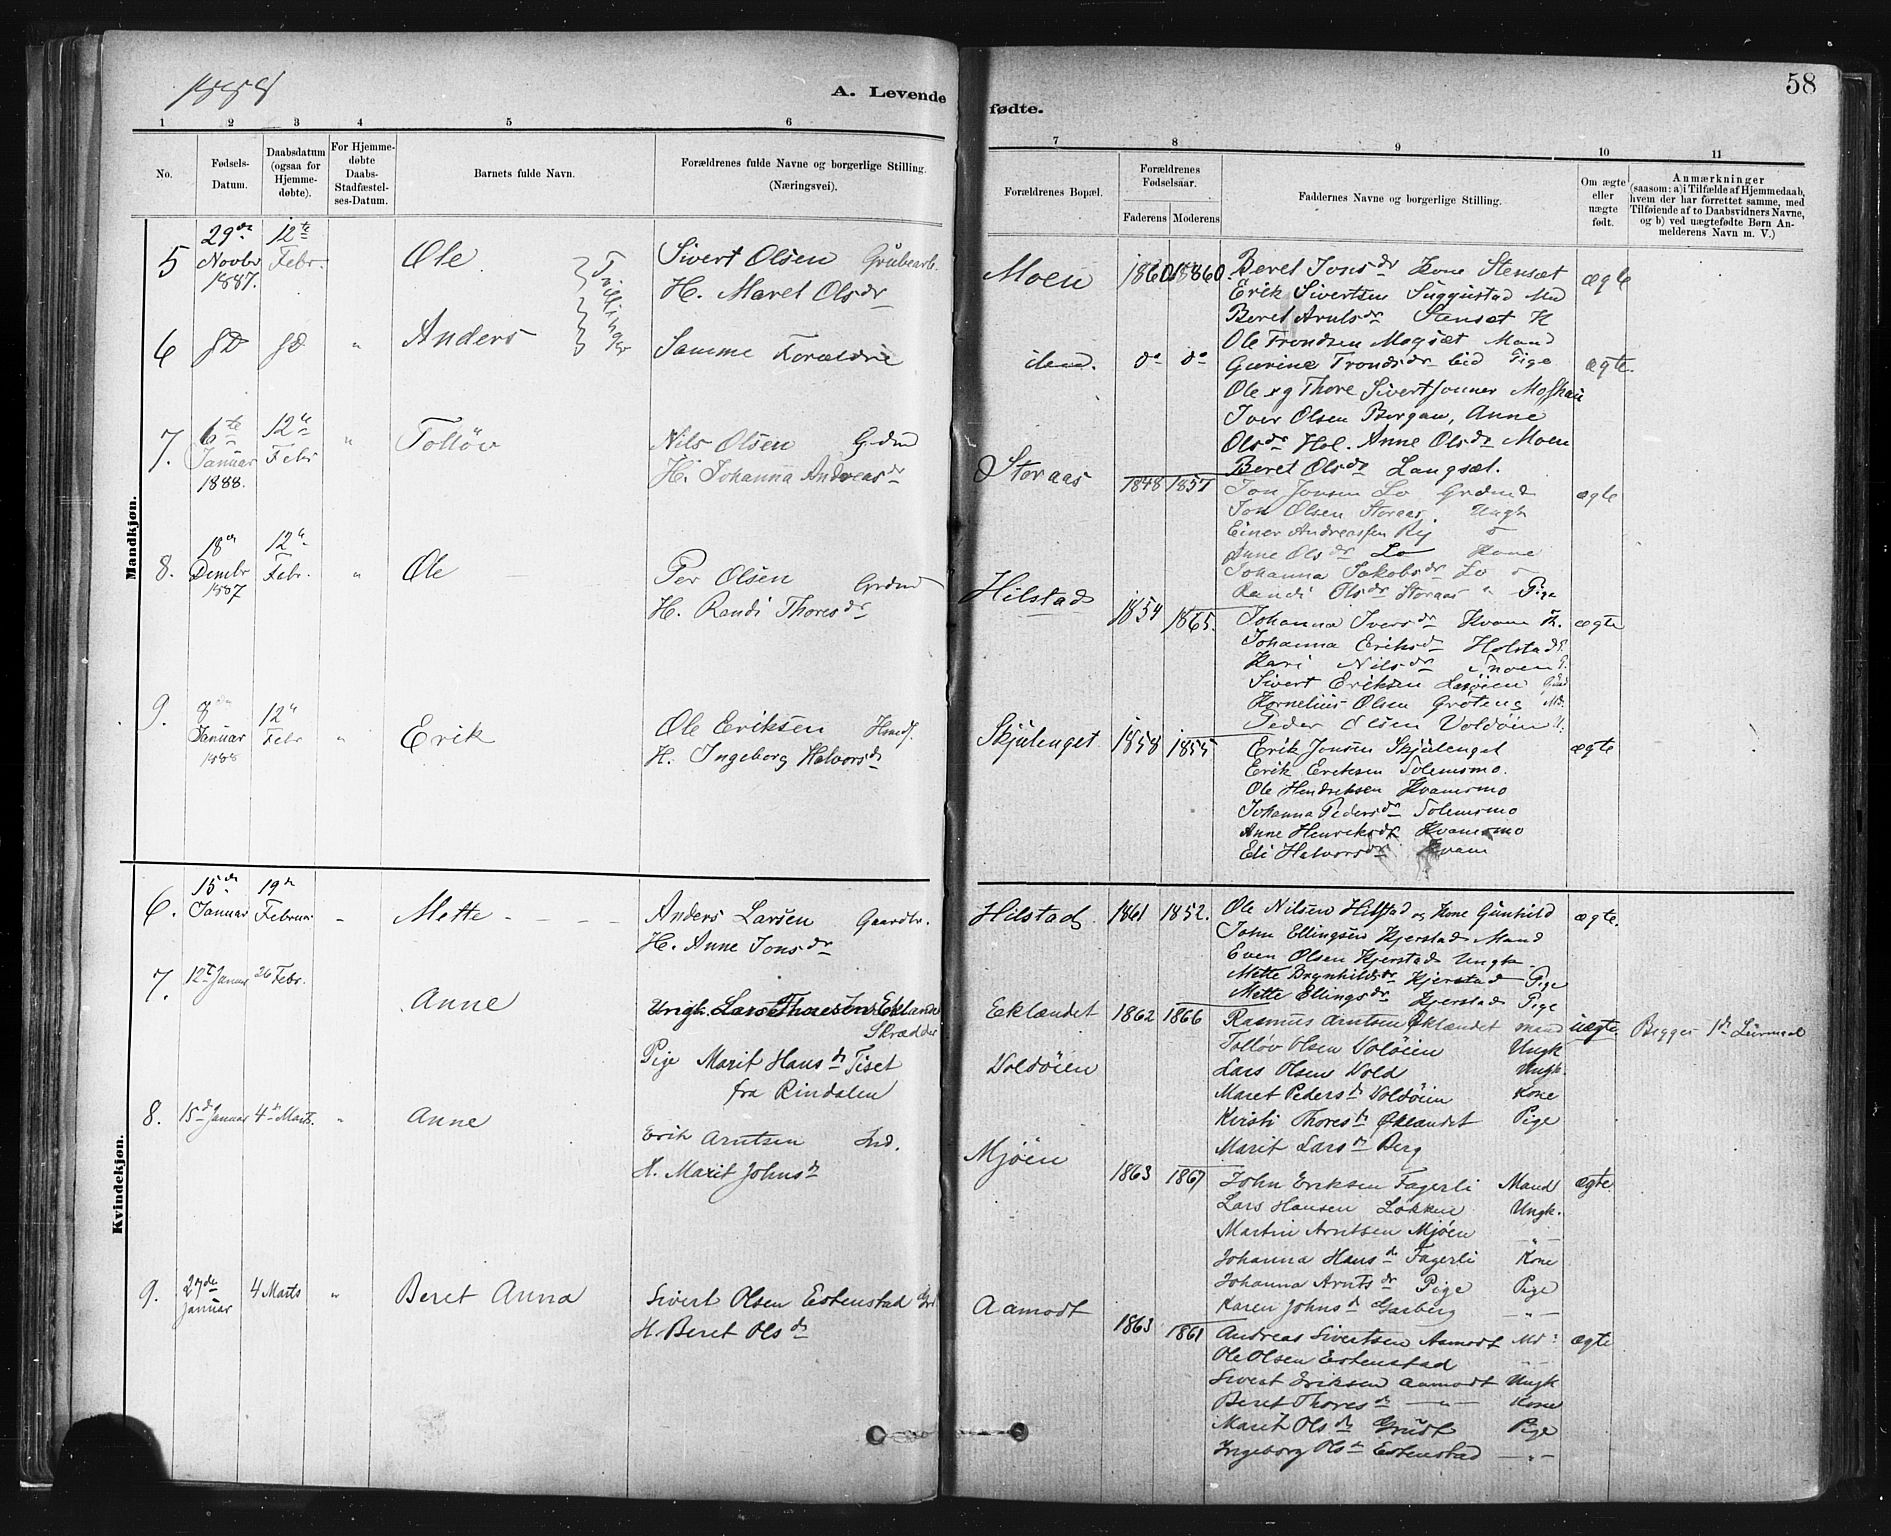 1888
A. Levende
fødte.
58
1 2 3 4 5 6 7 8 9 10 11
No.
Fødsels-Datum.
Daabsdatum (ogsaa for Hjemmedøbte).
For Hjemmedøbte Daabs-Stadfæstelses-Datum.
Barnets fulde Navn.
Forældrenes fulde Navne og borgerlige Stilling. (Næringsvei.)
Forældrenes Bopæl.
Forældrenes Fødselsaar.
Faderens Moderens
Faddernes Navne og borgerlige Stilling.
Om ægte eller uægte født.
Anmærkninger
(saasom: a) i Tilfælde af Hjemmedaab, hvem der har forrettet samme, med Tilføiende af to Daabsvidners Navne, og b) ved uægtefødte Børn Anmelderens Navn m. V.)
Mandkjøn.
5 29de Novbr 1887. 12te Febr. Ole Tvillinger
Sivert Olsen Grubearb.
H. Maret Olsdr
Moen 1860 1860 ægte
Beret Jonsdr Kone Stensæt
Erik Sivertsen
Beret Arntsdr Stenset K
Ole Trondsen Mogsæt Mand
6 " Anders
Samme Forældre
idem. do do ægte.
Gurine Trondsdr ibid Pige
Ole og Thore Sivertsønner
Iver Olsen Bergan, Anne
Olsdr Hol. Anne Olsdr Moen
Beret Olsdr Langsæt.
7. 6te Januar 1888. 12te Febr " Tolløv
Nils Olsen Grdmd
H. Johanna Andreasdr
Storaas 1848 1857 ægte
Jon Jonsen Lo Grdmd
Jon Olsen Storaas Ungk
Einer Andreassen
Anne Olsdr Lo Kone
Johanna Jakobsdr Lo
Randi Olsdr Storaas " Pige
8. 18de Dcembr 1887 12te Febr. " Ole
Per Olsen Grdmd
H. Randi Thoresdr
Hilstad 1854 1865. ægte
Johanna Iversdr Kvam K.
Johanna Eriksdr Holstad P.
Kari Nilsdr Snoen P.
Sivert Eriksen
Kornelius Olsen Grøteng Md.
Peder Olsen Voldøien U.
9. 8de Januar 1888 12te Febr " Erik
Ole Eriksen Husmd.
H. Ingeborg Halvorsdr
Skjølenget 1858 1855 ægte
Erik Jonsen Skjølenget
Erik Eriksen Solemsmo.
Ole Hendriksen Kvamsmo
Johanna Pedersdr Solemsmo
Anne Henriksdr Kvamsmo
Eli Halvorsdr Kvam
Kvindekjøn.
6. 15de Januar 19de Februar " Mette
Anders Larsen Gaardbr.
H. Anne Jonsdr
Hilstad 1861 1852. ægte.
Ole Nilsen Hilstad og Kone Gunhild
John Ellingsen Hjerstad Mand
Even Olsen Hjerstad Ungk.
Mette Brynhildsdr Hjerstad Pige
Mette Ellingsdr Hjerstad Pige
7. 12te Januar 26 Febr. Anne
Ungk. Lars Thoresen Eklandet
Skrædder
Pige Marit Hansdr Tiset
fra Rindalen
Eklændet 1862 1866 uægte. Begges 1de Leiermaal
Voldøien
Rasmus Arntsen Øklændet mand
Tolløv Olsen Voløien Ungk
Lars Olsen Vold Ungk
Maret Pedersdr Voldøien Kone
Kirsti Thoresdr Øklændet Pige
Marit Larsdr Berg
8. 15de Januar 4de Marts. " Anne
Erik Arntsen Ind.
H. Marit Johnsdr
Mjøen 1863 1867 ægte.
John Eriksen Fagerli Mand
Lars Hansen Løkken Ungk.
Martin Arntsen Mjøen "
Johanna Hansdr Fagerli Kone
Johanna Arntsdr Pige Pige
Karen Johnsdr Garberg "
9. 27de Januar 4 Marts " Beret Anna
Sivert Olsen Estenstad Grd
H. Beret Olsdr
Aamodt 1863 1861 ægte
Andreas Sivertsen Aamodt Md.
Ole Olsen Estenstad "
Sivert Eriksen Aamodt Ungk
Beret Thoresdr " Kone
Marit Olsdr Grudt Pige
Ingeborg Olsdr Estenstad "